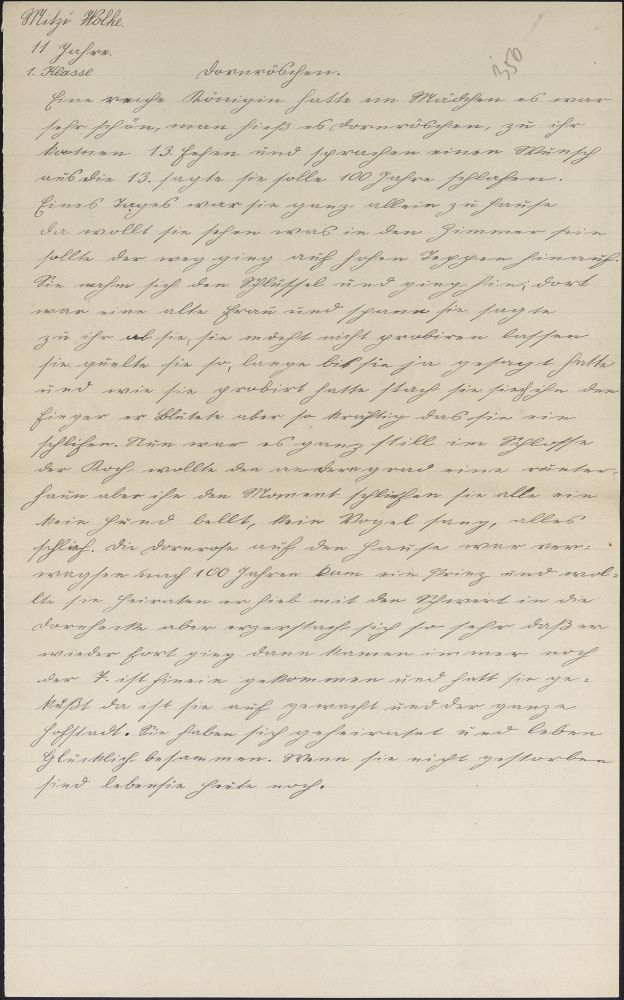 Mitzi Wolke.
11 Jahre.
1. Klasse
Dornröschen.
350
Eine reiche Königin hatte ein Mädchen es war
sehr schön, man hieß es Dornröschen, zu ihr
kamen 13. Fehen und sprachen einen Wunsch
aus die 13. sagte sie solle 100 Jahre schlafen.
Eines Tages war sie ganz allein zu Hause
da wollt sie sehen was in den Zimmer sein
sollte der weg ging auf hohen Teppen hinauf.
Sie nahm sich den Schlüssel und ging hin; dort
war eine alte Frau und spann sie sagte
zu ihr ob sie, sie möcht nicht probiren lassen
sie quelte sie so, lange bis sie ja gesagt hatte
und wie sie probirt hatte stach sie sich in den
Finger er blutete aber so kräftig das sie ein
schlifen. Nun war es ganz still im Schlosse
der Koch, wollte den andern grad eine runter-
haun aber in den Moment schliefen sie alle ein
kein Hund bellt, kein Vogel sang, alles
schlief. Die Dornrose auf den Hause war ver-
wagsen nach 100 Jahren kam ein Prinz und wol-
lte sie heiraten er hieb mit den Schwert in die
Dornhecke aber er zerstach sich so sehr daß er
wieder fort ging dann kamen immer noch
der 7. ist hinein gekommen und hatt sie ge-
küßt da ist sie auf gewacht und der ganze
Hofstadt. Sie haben sich geheiratet und leben
Glücklich besammen. Wenn sie nicht gestorben
sind leben sie heute noch.